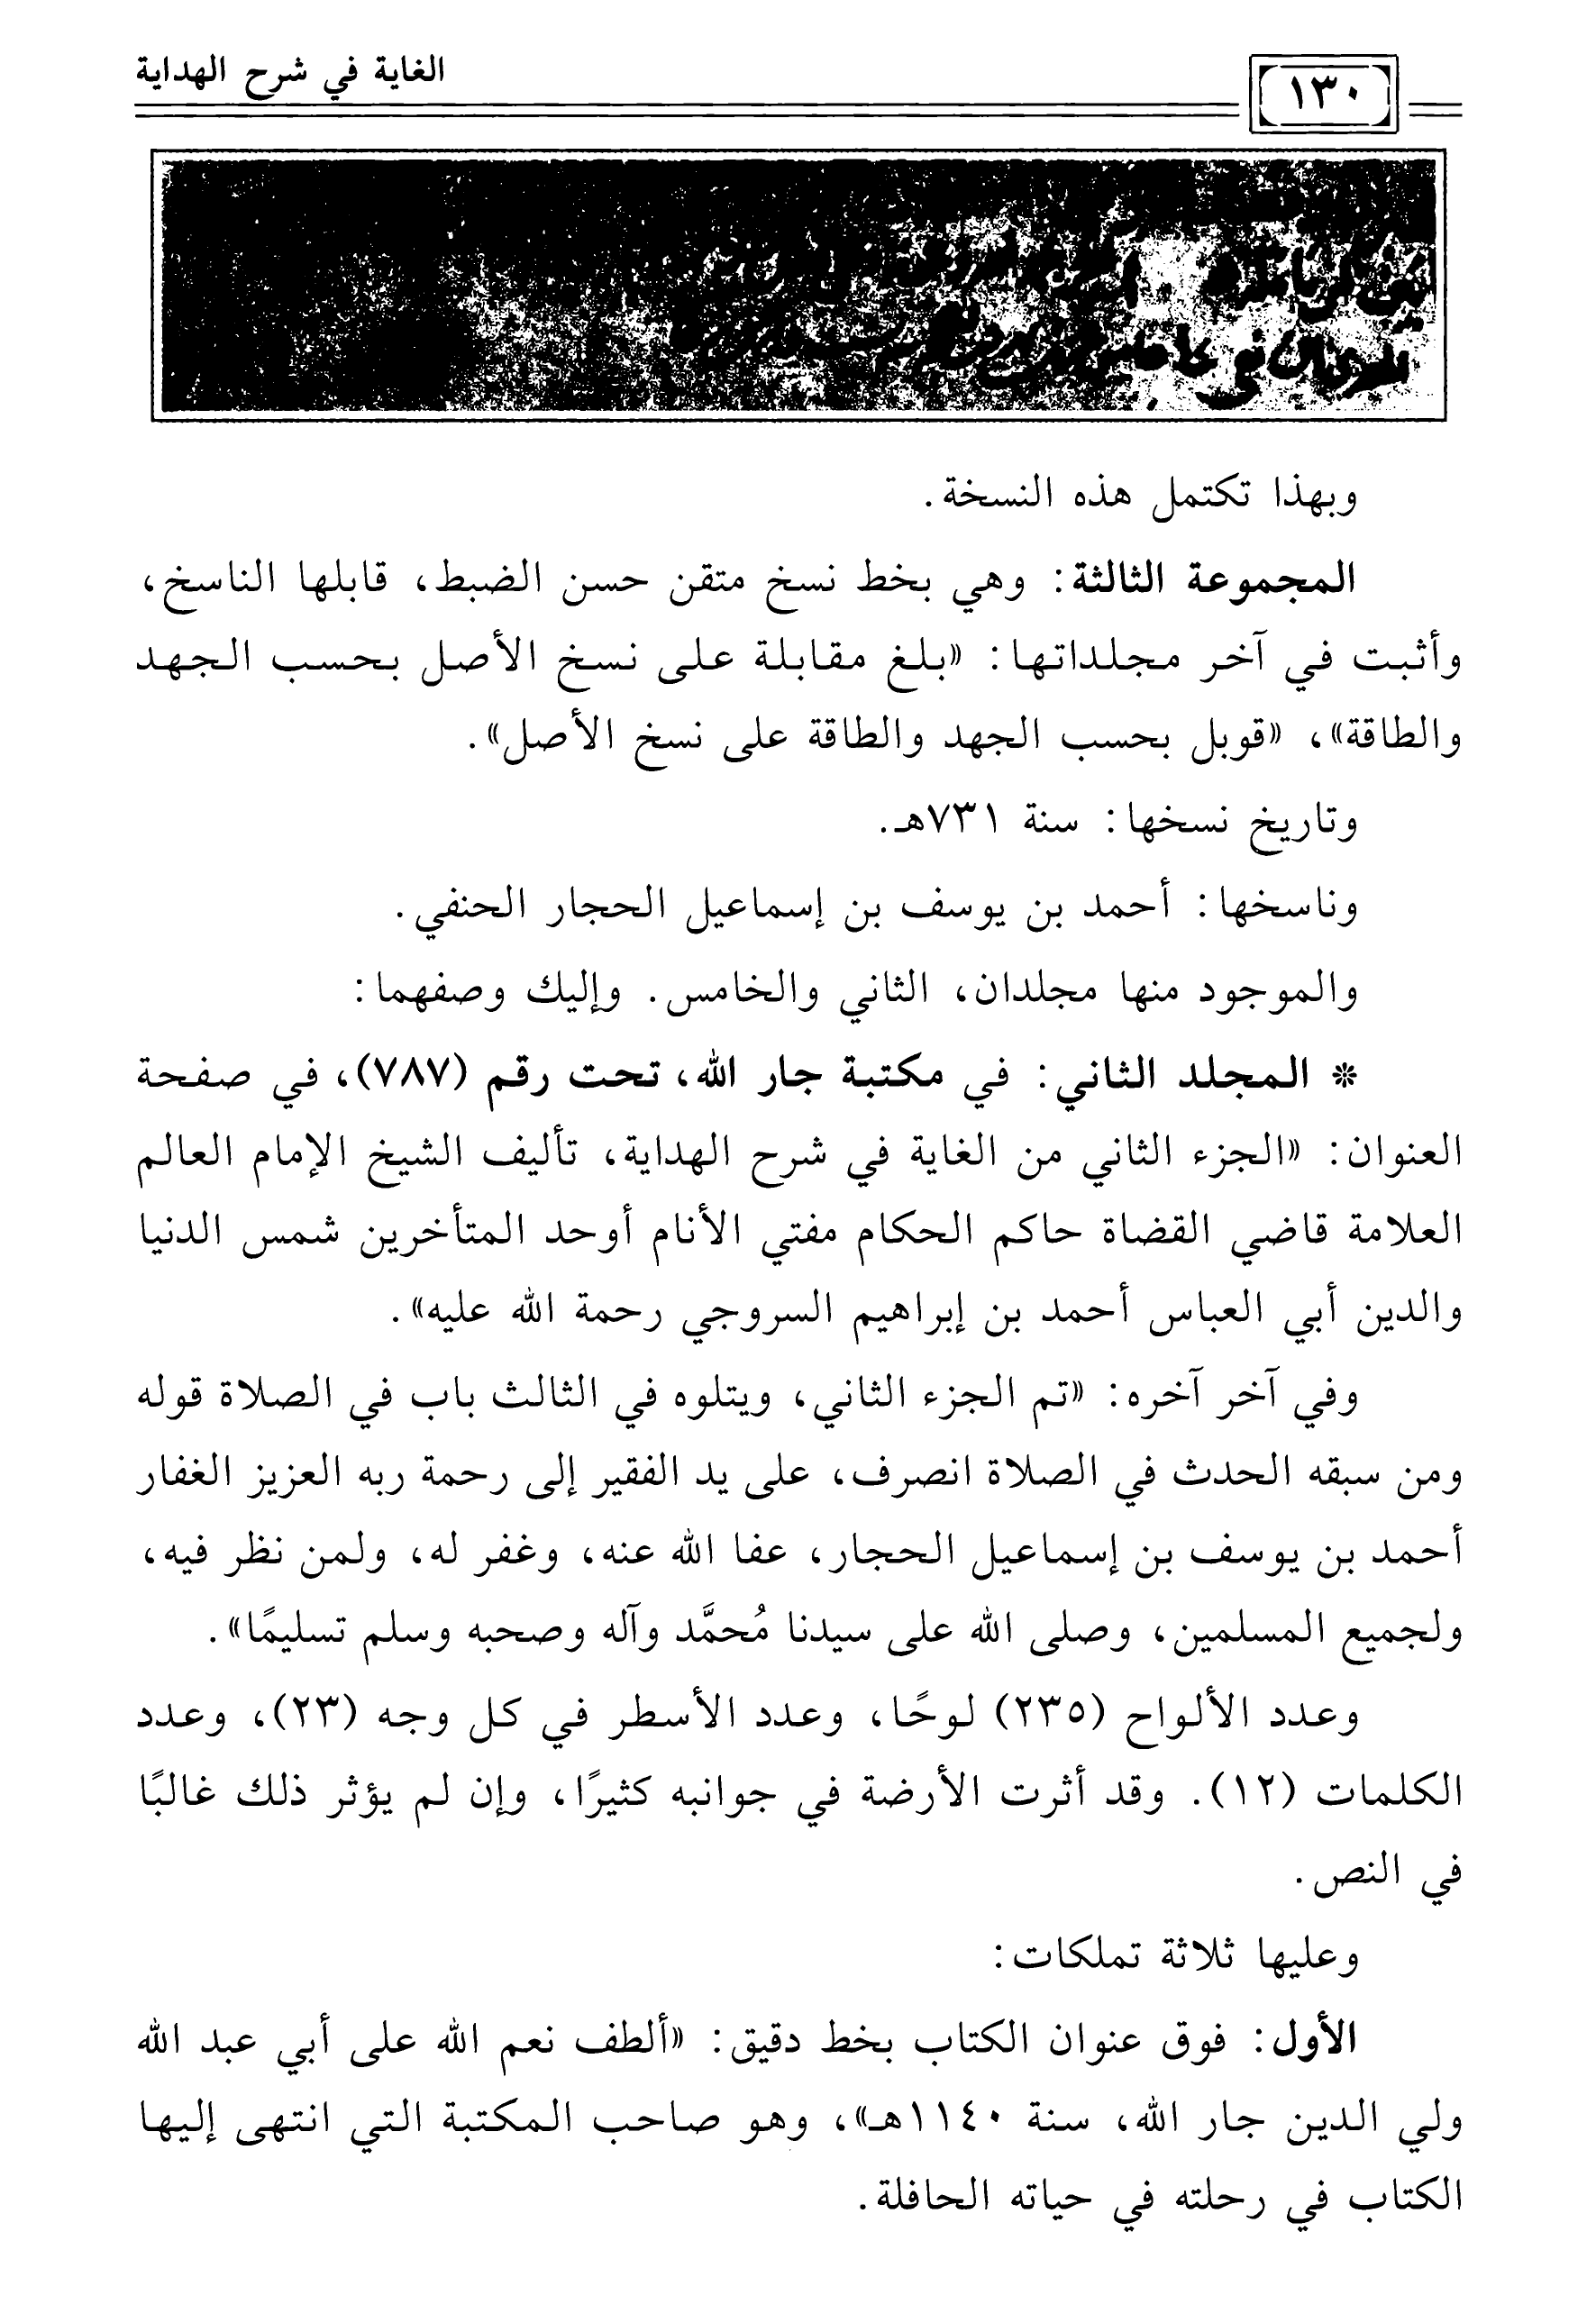 الغاية في شرح الهداية
١٣٠
وبهذا تكتمل هذه النسخة.
المجموعة الثالثة: وهي بخط نسخ متقن حسن الضبط، قابلها الناسخ،
وأثبت في آخر مجلداتها: «بلغ مقابلة على نسخ الأصل بحسب الجهد
والطاقة»، «قوبل بحسب الجهد والطاقة على نسخ الأصل».
وتاريخ نسخها: سنة ٧٣١هـ.
وناسخها: أحمد بن يوسف بن إسماعيل الحجار الحنفي.
والموجود منها مجلدان، الثاني والخامس. وإليك وصفهما:
* المجلد الثاني: في مكتبة جار الله، تحت رقم (٧٨٧)، في صفحة
العنوان: «الجزء الثاني من الغاية في شرح الهداية، تأليف الشيخ الإمام العالم
العلامة قاضي القضاة حاكم الحكام مفتي الأنام أوحد المتأخرين شمس الدنيا
والدين أبي العباس أحمد بن إبراهيم السروجي رحمة الله عليه».
وفي آخر آخره: «تم الجزء الثاني، ويتلوه في الثالث باب في الصلاة قوله
ومن سبقه الحدث في الصلاة انصرف، على يد الفقير إلى رحمة ربه العزيز الغفار
أحمد بن يوسف بن إسماعيل الحجار، عفا الله عنه، وغفر له، ولمن نظر فيه،
ولجميع المسلمين، وصلى الله على سيدنا مُحمَّد وآله وصحبه وسلم تسليمًا».
وعدد الألواح (٢٣٥) لوحًا، وعدد الأسطر في كل وجه (٢٣)، وعدد
الكلمات (١٢). وقد أثرت الأرضة في جوانبه كثيرًا، وإن لم يؤثر ذلك غالبًا
في النص.
وعليها ثلاثة تملكات:
الأول: فوق عنوان الكتاب بخط دقيق: «ألطف نعم الله على أبي عبد الله
ولي الدين جار الله، سنة ١١٤٠هـ»، وهو صاحب المكتبة التي انتهى إليها
الكتاب في رحلته في حياته الحافلة.